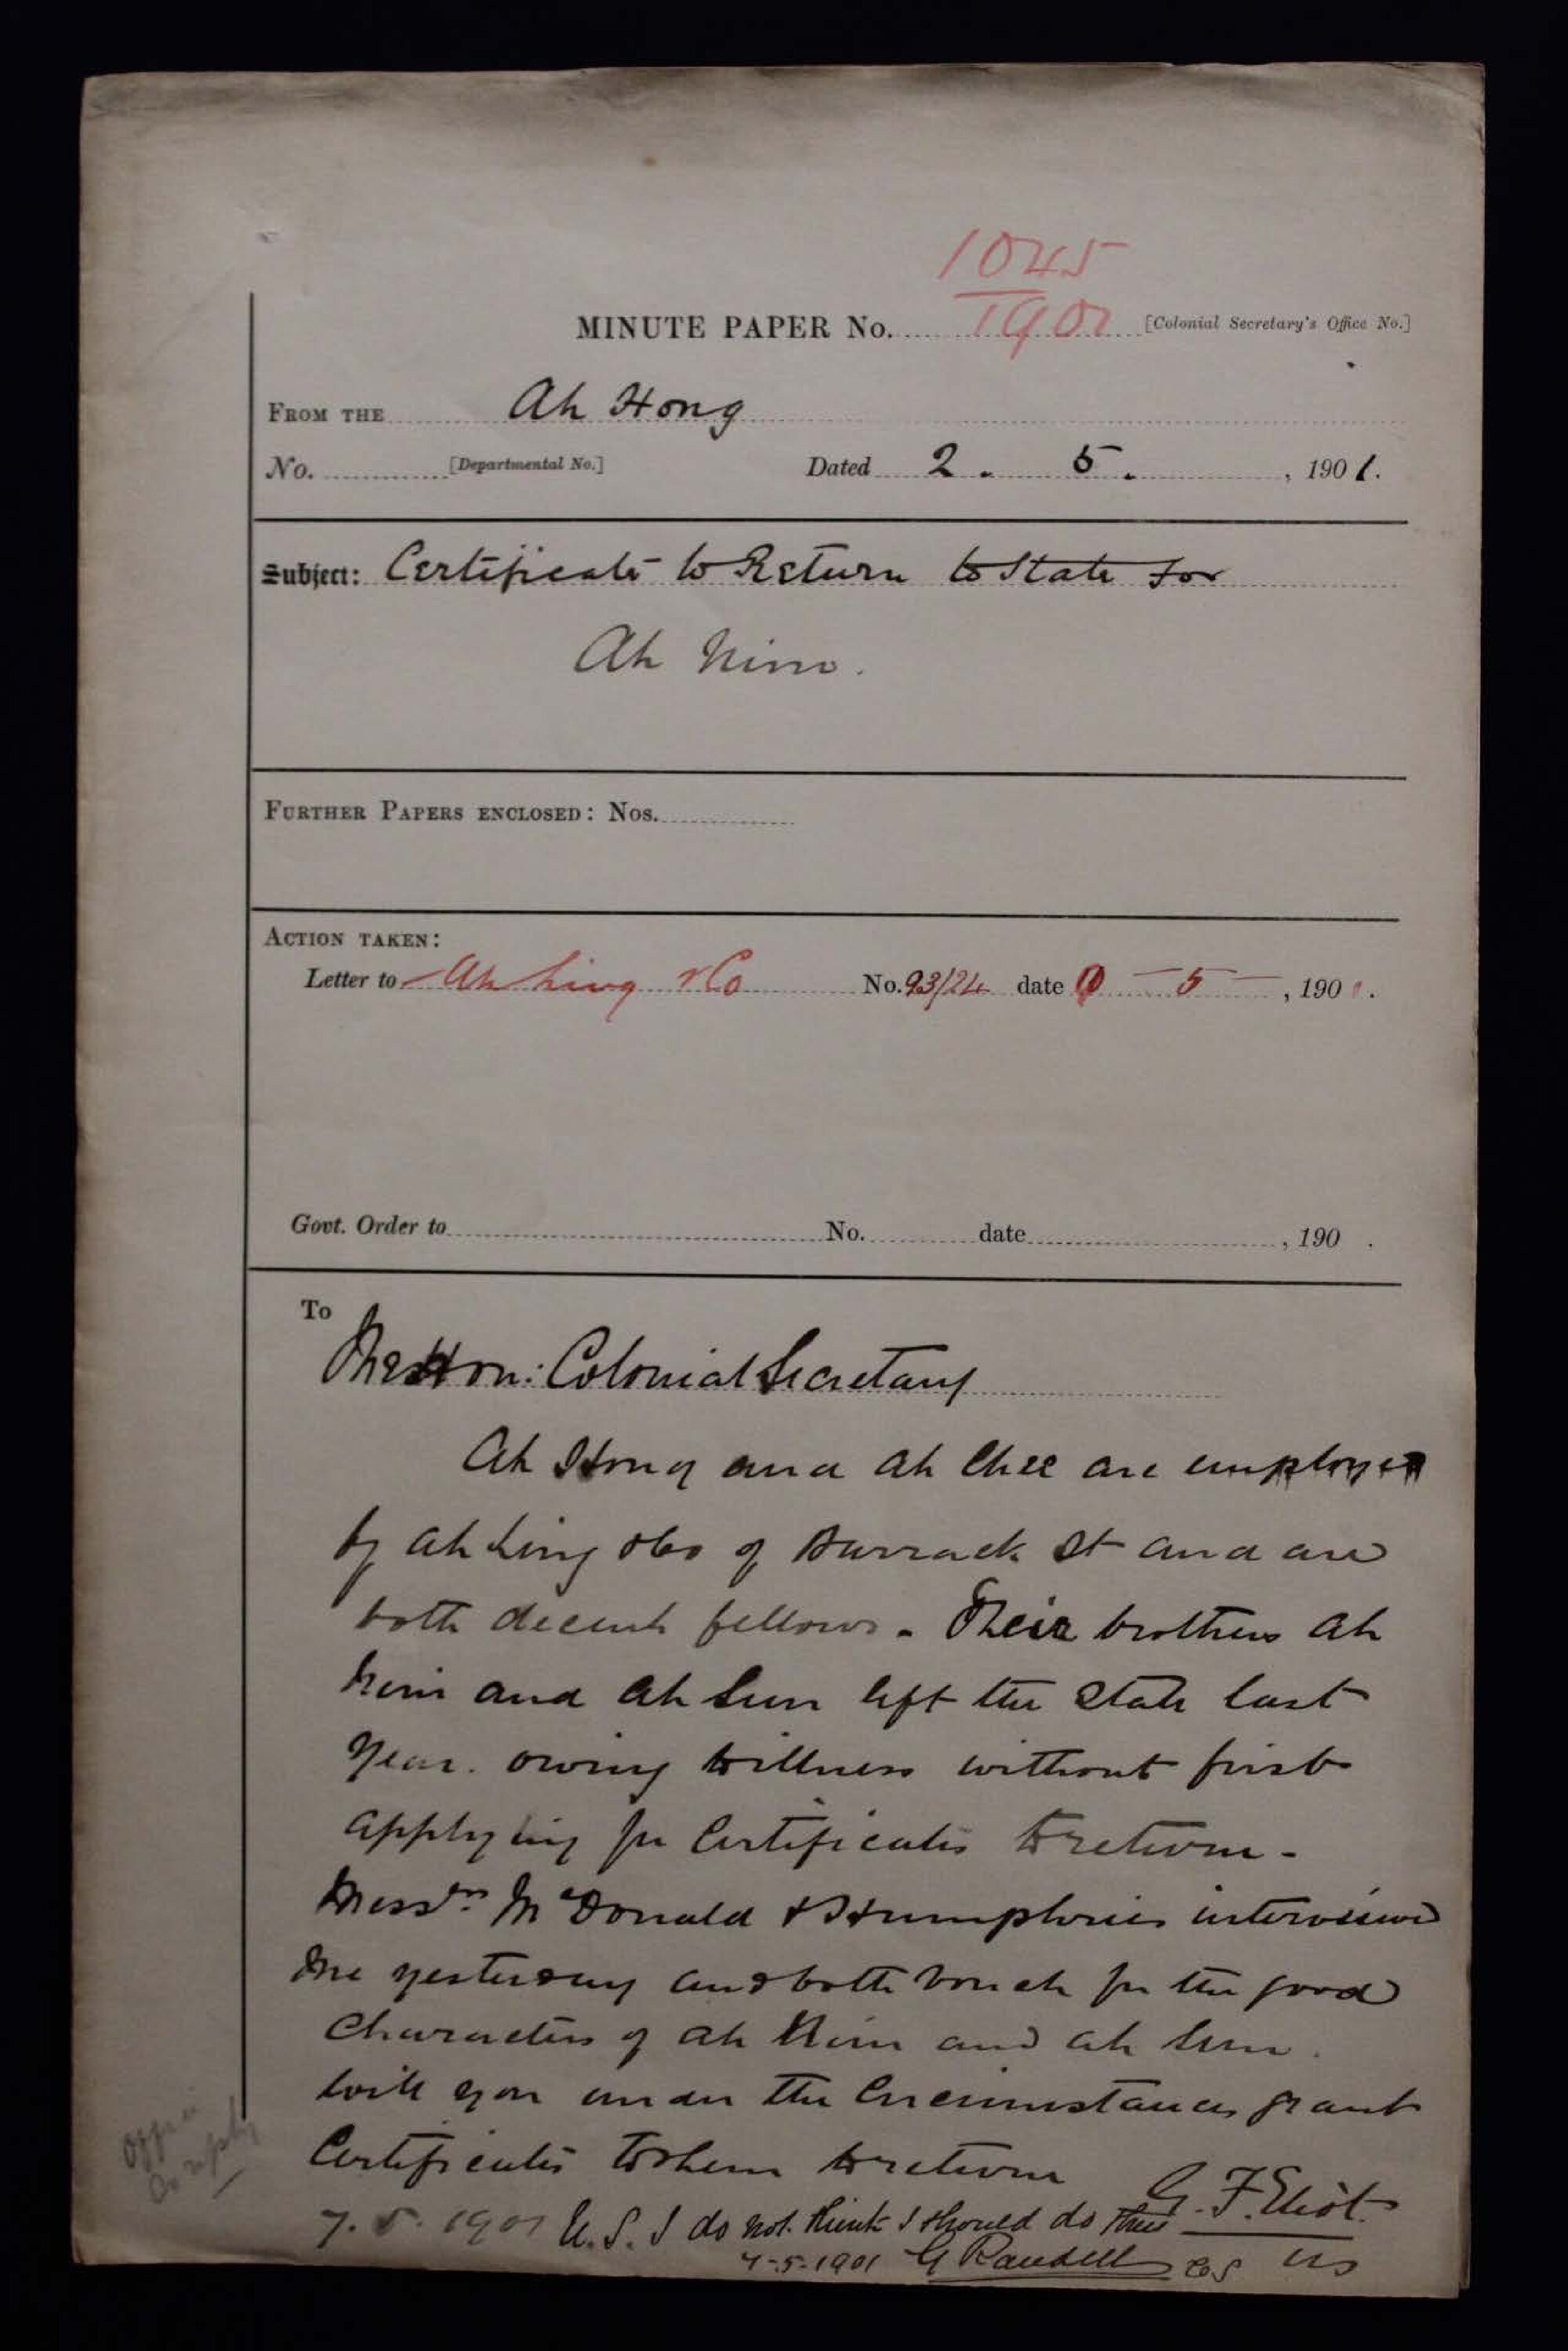 1045
1901
MINUTE PAPER No. [Colonial Secretary's Office No.]
FROM THE Ah Hong
No. [Departmental No.] Dated 2. 5. , 1901.
Subject: Certificate to Return to State for
Ah Nim.
FURTHER PAPERS ENCLOSED: Nos.
ACTION TAKEN:
Letter to Ah Ling & Co No. 93/24 date 5 , 1901.
Govt. Order to No. date , 190 .
To
The Hon: Colonial Secretary
Ah Hong and Ah Chee are employed
by Ah Ling & Co of Barrack St and are
both decent fellows. Their brothers Ah
Nim and Ah Sun left the State last
year. owing to illness without first
applying for Certificates to return.
Messrs. McDonald & Humphries interviewed
me yesterday and both vouch for the good
characters of Ah Nim and Ah Sun.
Will you under the circumstances grant
Certificates to them to return
G. F. Eliot
7.5.1901 U.S. I do not think I should do this
US
7-5-1901 G Randell CS